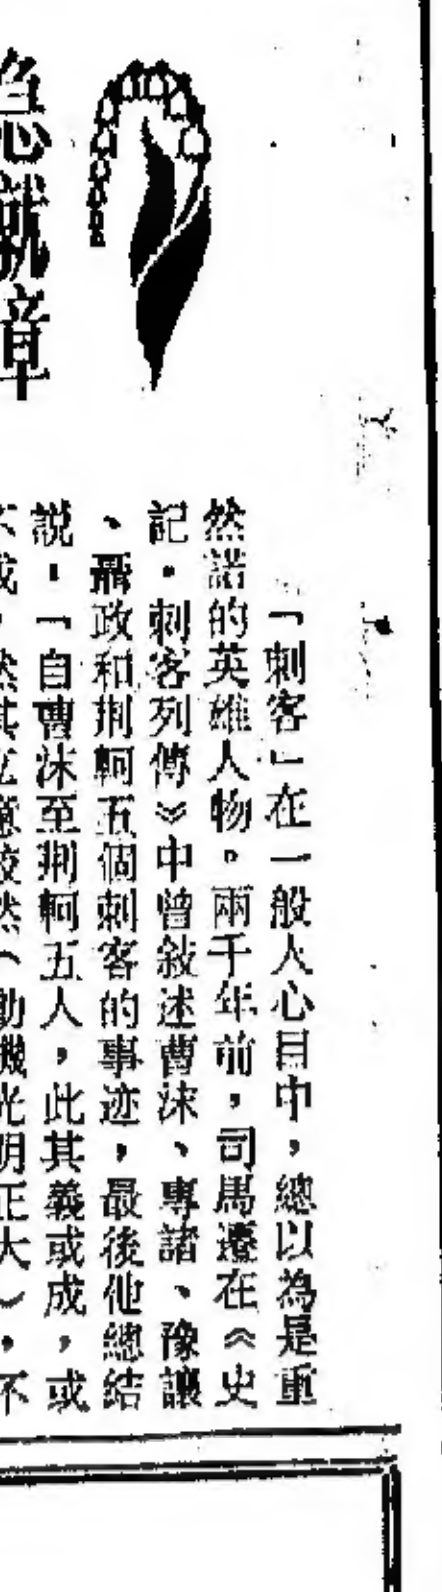 「刺客」在一般人心目中，總以為是重
然諾的英雄人物。兩千年前，司馬遷在《史
記·刺客列傳》中曾敍述曹沫、專諸、豫讓
、聶政和荆軻五個刺客的事迹，最後他總結
説：「自曹沫至荆軻五人，此其義或成，或
不成，然其立意較然（動機光明正大），不
急就章